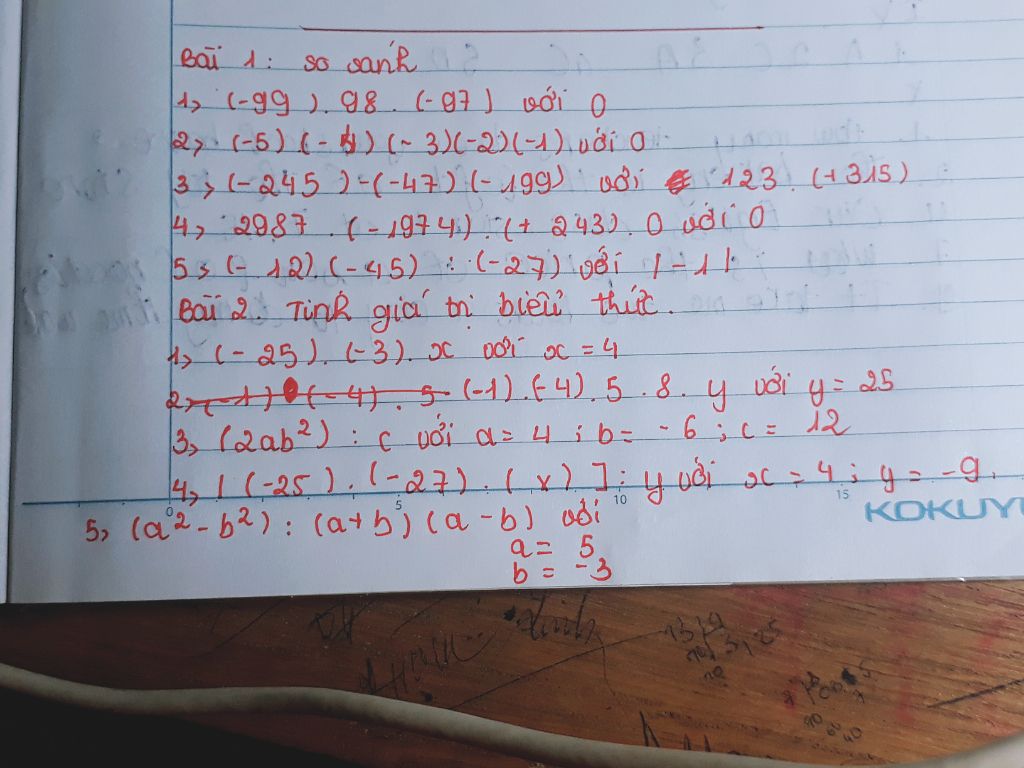 Bài 1: so sánh
1, (-99). 98. (-97) với 0
2, (-5) (-4) (-3)(-2)(-1) với 0
3, (-245)-(-47)(-199) với 123. (+315)
4, 2987. (-1974). (+ 243). 0 với 0
5, (-12). (-45) : (-27) với |-1|
Bài 2. Tính giá trị biểu thức.
1, (-25). (-3). x với x = 4
2, (-1) (-4). 5 (-1). (-4). 5. 8. y với y = 25
3, (2ab²) : c với a = 4; b = -6; c = 12
4, [(-25). (-27). (x)] : y với x = 4; y = -9.
0 5 10 15 KOKUY
5, (a² - b²) : (a+b) (a-b) với
a = 5
b = -3